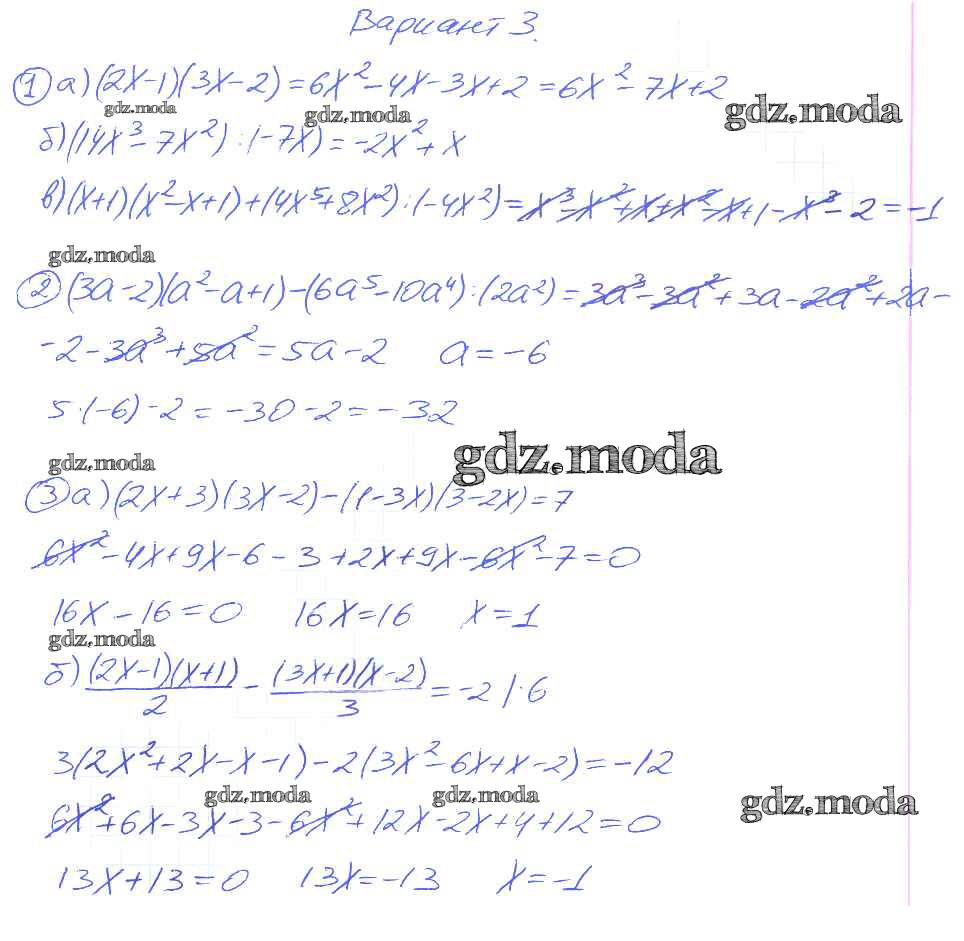 Вариант 3.
① а) (2x-1)(3x-2) = 6x² - 4x - 3x + 2 = 6x² - 7x + 2
gdz.moda gdz.moda gdz.moda
б) (14x³ - 7x²) : (-7x) = -2x² + x
в) (x+1)(x² - x + 1) + (4x⁵ + 8x²) : (-4x²) = x³ - x² + x + x² - x + 1 - x³ - 2 = -1
gdz.moda
② (3a-2)(a² - a + 1) - (6a⁵ - 10a⁴) : (2a²) = 3a³ - 3a² + 3a - 2a² + 2a -
- 2 - 3a³ + 5a² = 5a - 2 a = -6
5·(-6) - 2 = -30 - 2 = -32
gdz.moda gdz.moda
③ а) (2x+3)(3x-2) - (1-3x)(3-2x) = 7
6x² - 4x + 9x - 6 - 3 + 2x + 9x - 6x² - 7 = 0
16x - 16 = 0 16x = 16 x = 1
gdz.moda
б) (2x-1)(x+1)/2 - (3x+1)(x-2)/3 = -2 |·6
3(2x² + 2x - x - 1) - 2(3x² - 6x + x - 2) = -12
gdz.moda gdz.moda gdz.moda
6x² + 6x - 3x - 3 - 6x² + 12x - 2x + 4 + 12 = 0
13x + 13 = 0 13x = -13 x = -1